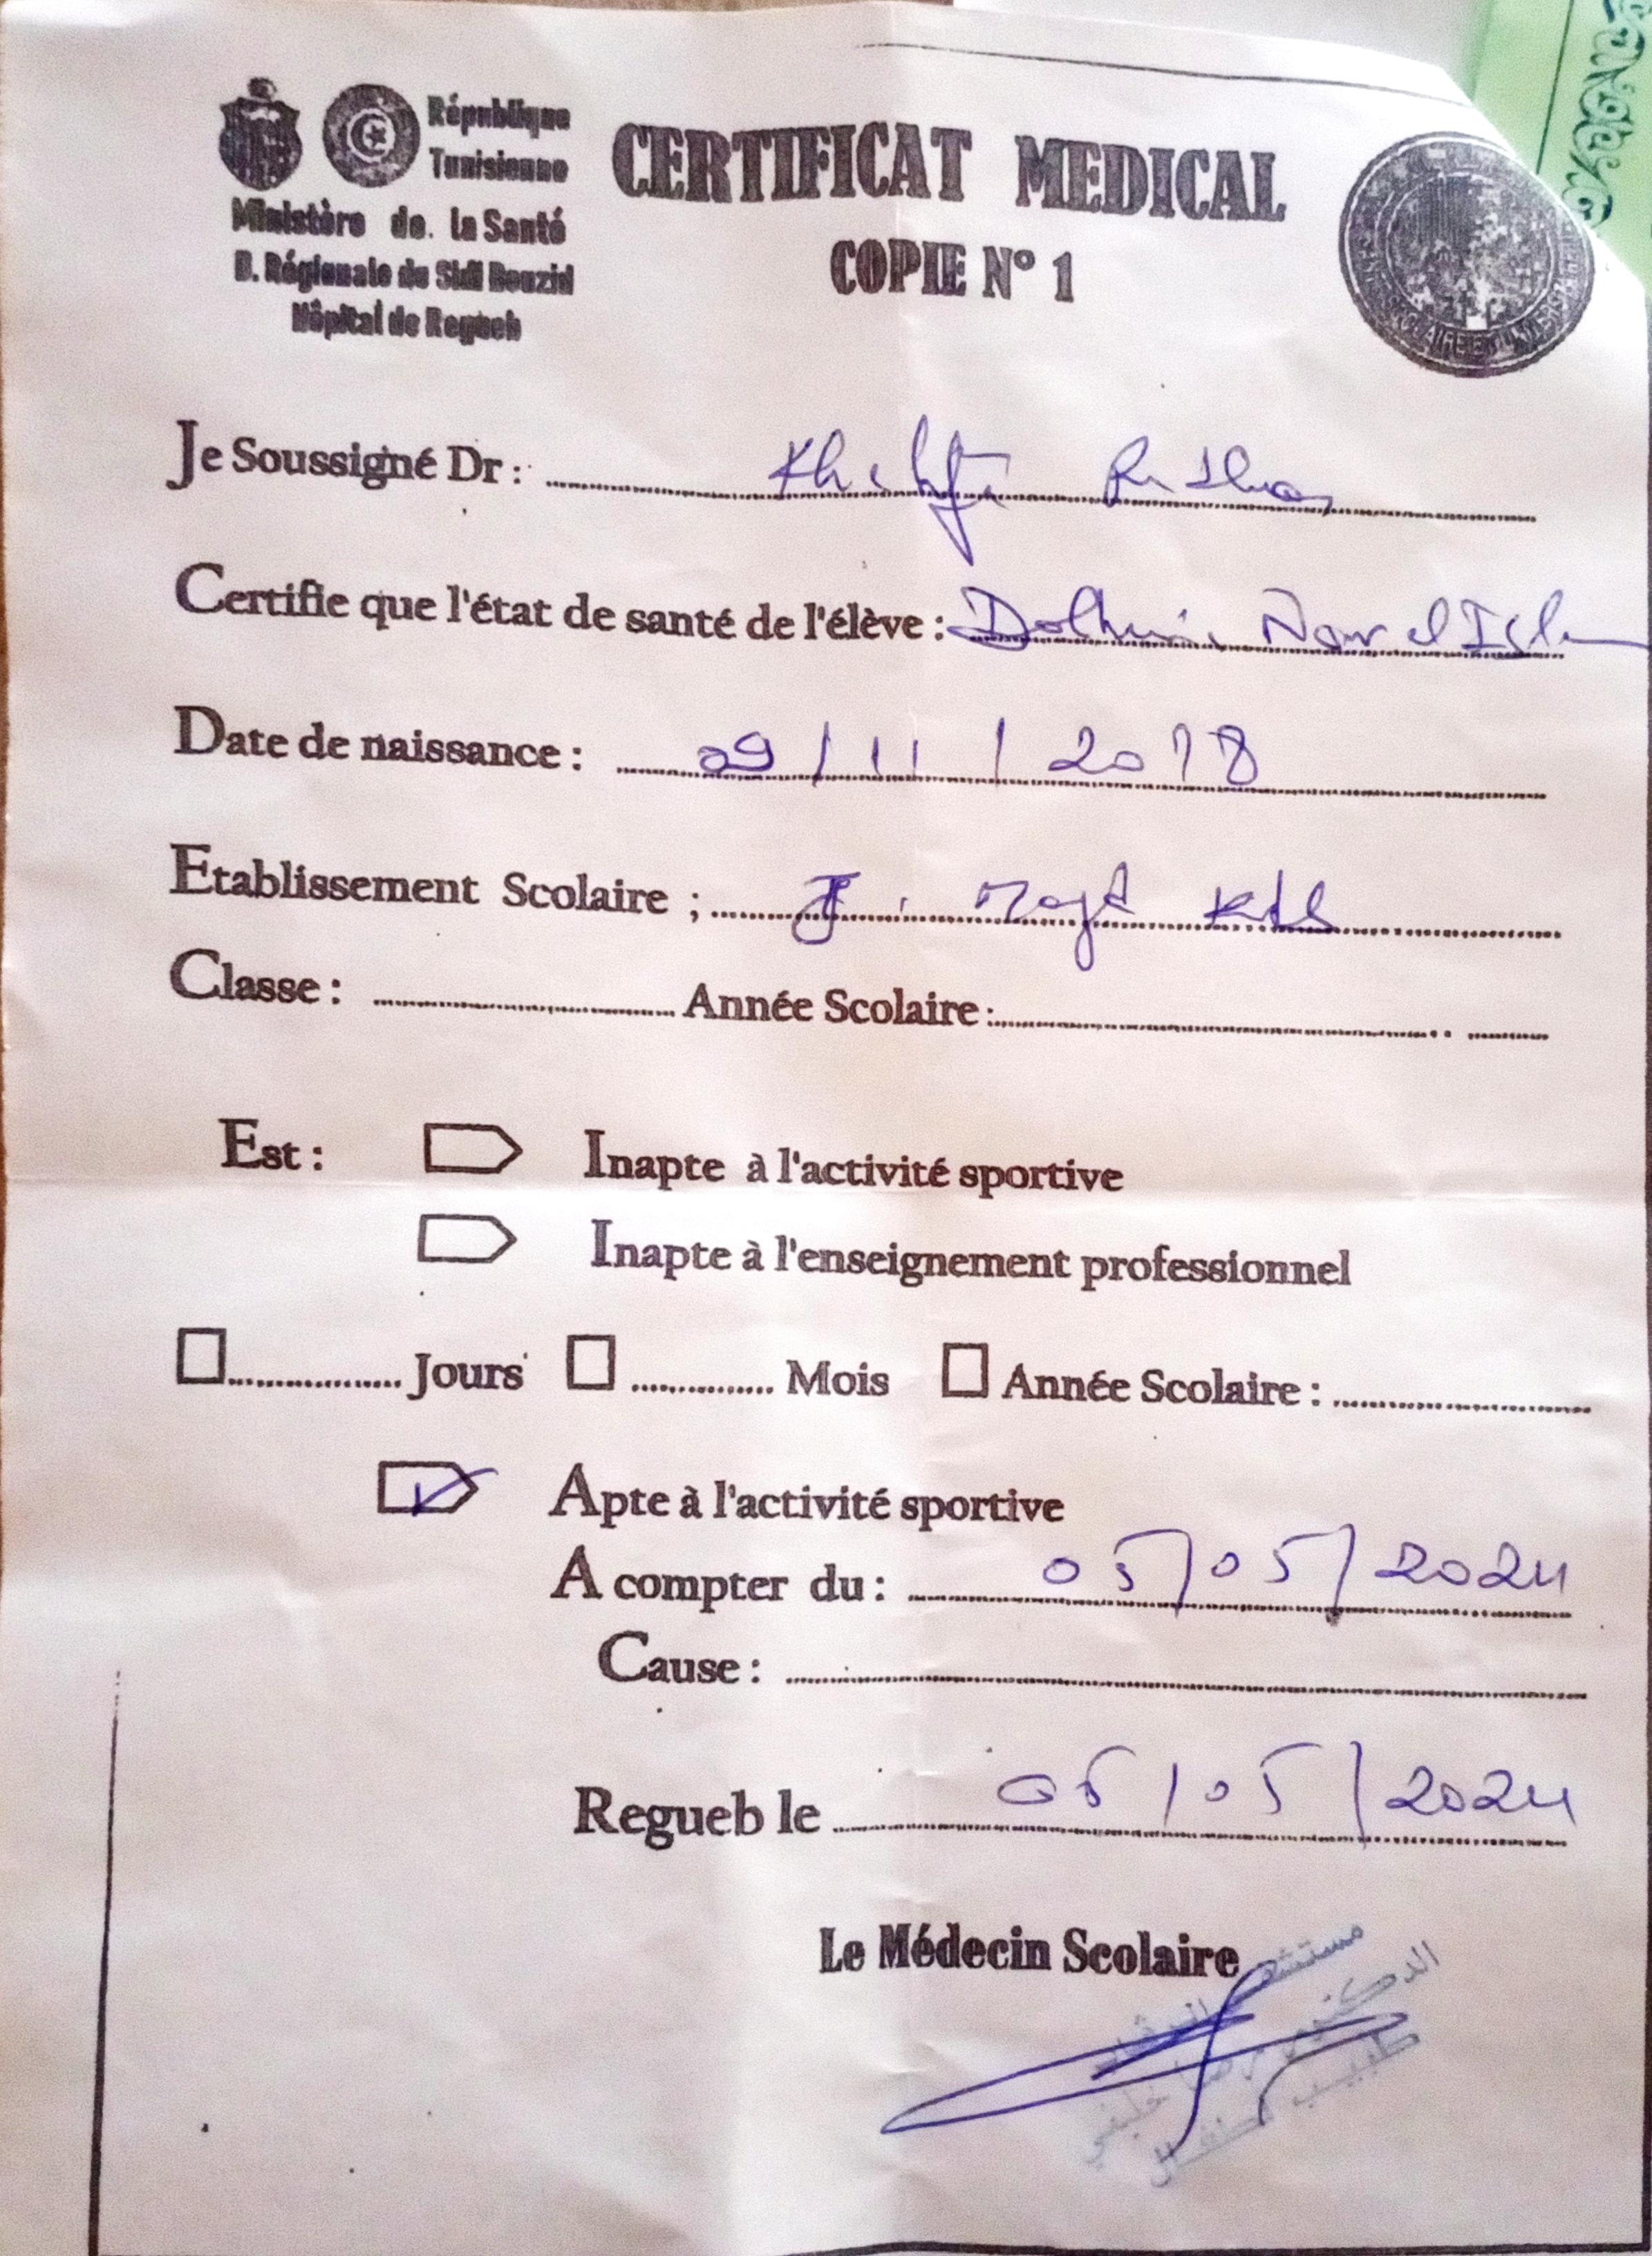 République
Tunisienne
Ministère de. la Santé
D. Régionale de Sidi Bouzid
Hôpital de Regueb
CERTIFICAT MEDICAL
COPIE N° 1
Je Soussigné Dr : Khelifi Ridha
Certifie que l'état de santé de l'élève : Nour el Islem
Date de naissance : 09/11/2018
Etablissement Scolaire ; Majd Kids
Classe : Année Scolaire :
Est : Inapte à l'activité sportive
Inapte à l'enseignement professionnel
Jours Mois Année Scolaire :
Apte à l'activité sportive
A compter du : 05/05/2024
Cause :
Regueb le 05/05/2024
Le Médecin Scolaire
مستشفى الرقاب
الدكتور رضا خليفي
طبيب